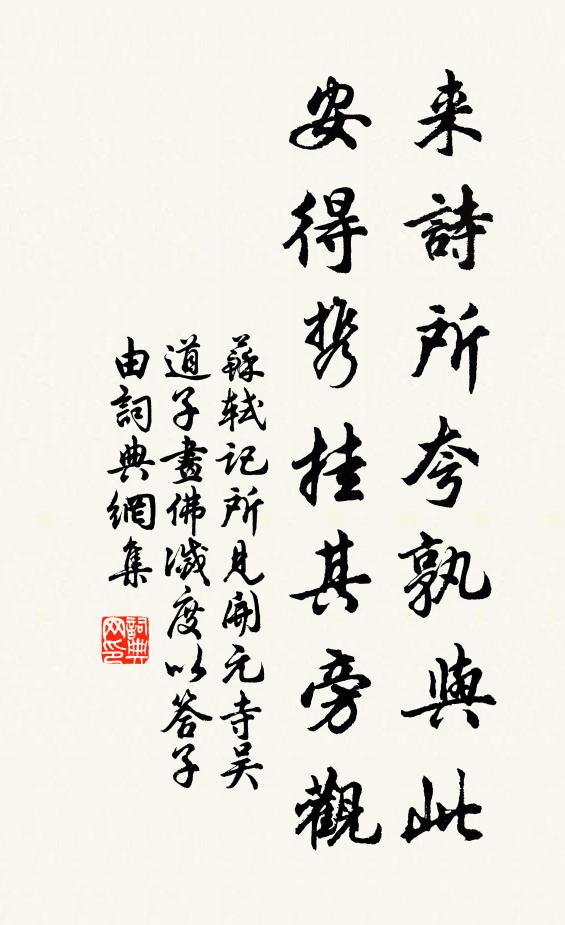 来詩所夸孰與此
安得携挂其旁觀
蘇軾記所見開元寺吴
道子畫佛滅度以答子
由詞典網集
詞典网印